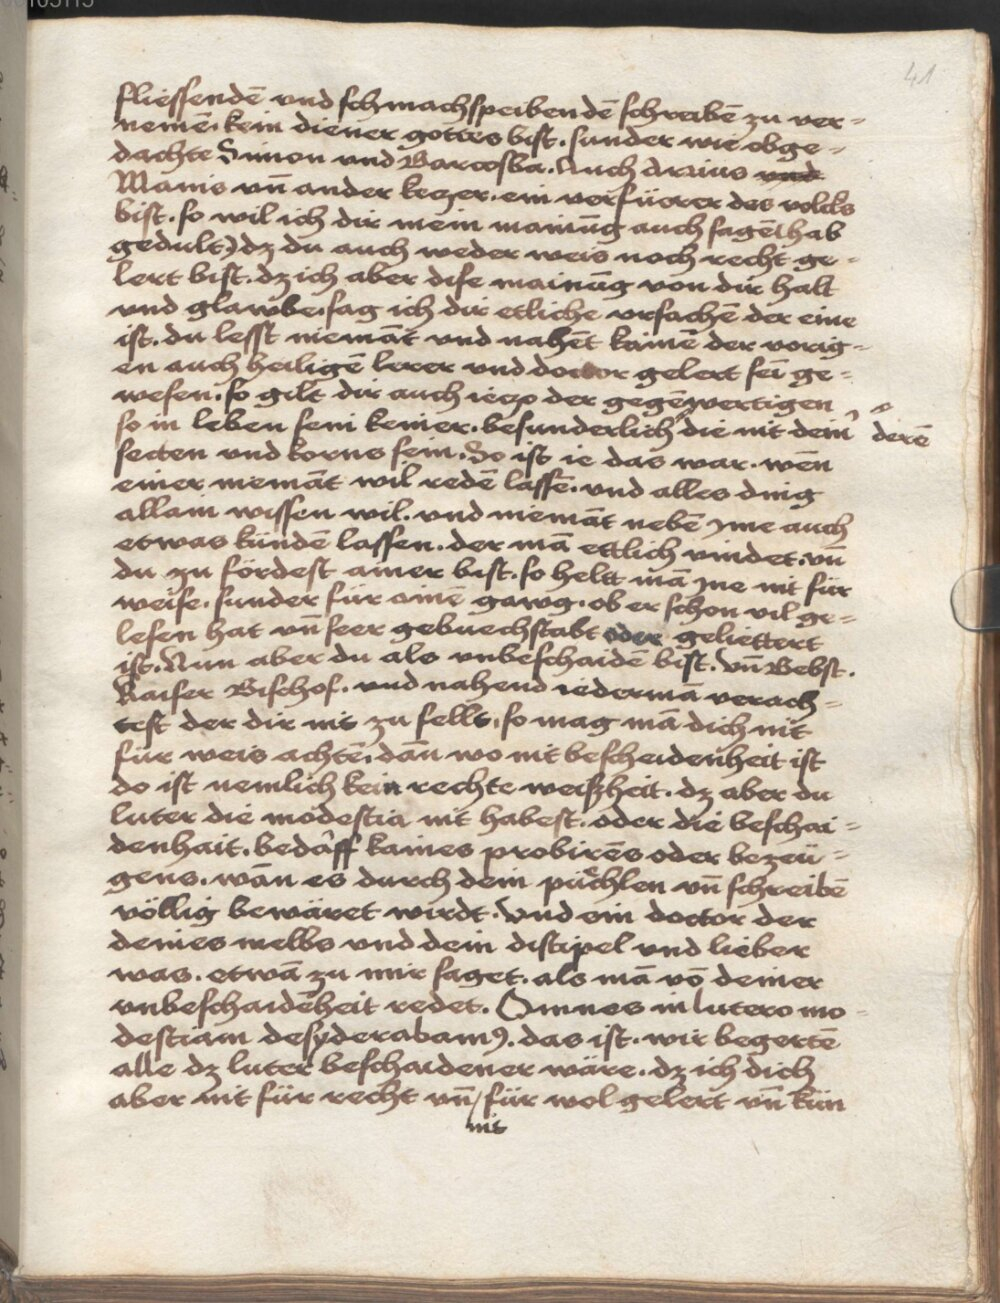 41
fliessendē vnd schmachspeibendē schreibē zu ver=
nemē. kein diener gottes bist. sunder wie obge=
dachte Simon vnd Barcosba. Auch Arrius vnd
Manis vn̄ ander kezer. ein verfüerer des volcks
bist. so wil ich dir mein mainūg auch sagē (hab
gedult) dz du auch weder weis noch recht ge=
lert bist. dz ich aber dise mainūg von dir halt
vnd glawbe. sag ich dir etliche vrsachē der eine
ist. du lesst niemāt vnd nahēt kainē der vorig=
en auch heiligē lerer vnd doctor gelert sei ge=
wesen. so gilt dir auch iecz der gegēwertigen
so in leben sein keiner. besunderlich die nit dein derē
secten vnd korns sein. So ist ie das war. wēn
einer niemāt wil redē lassē. vnd alles ding
allain wissen wil. vnd niemāt nebē yme auch
etwas kündē lassen. der mā ettlich vindet. vn̄
du zu fördest ainer bist. so helt mā yne nit für
weise. sunder für ainē gawg. ob er schon vil ge=
lesen hat vn̄ seer gebuechstabt oder geliettert
ist. Nun aber du als vnbeschaidē bist. vn̄ Bebst.
Kaiser Bischof. vnd nahend iedermā verach=
test der dir nit zu fellt, so mag mā dich nit
für weis achtē. dān wo nit bescheidenheit ist
do ist nemlich kein rechte weißheit. dz aber du
luter die modestia nit habest. oder die beschai=
denhait. bedarff kaines probirēs oder bezeü=
gens. wan es durch dein püchlen vn̄ schreibē
völlig bewäret wirdt. Vnd ein doctor der
deines melbs vnd dein discipel vnd lieber
was. etwā zu mir saget. als mā vō deiner
vnbeschaidēheit redet. Omnes in lutero mo=
destiam desyderabamꝰ. das ist. wir begertē
alle dz luter beschaidener wäre. dz ich dich
aber nit für recht vn̄ / für wol gelert vn̄ kün
nit